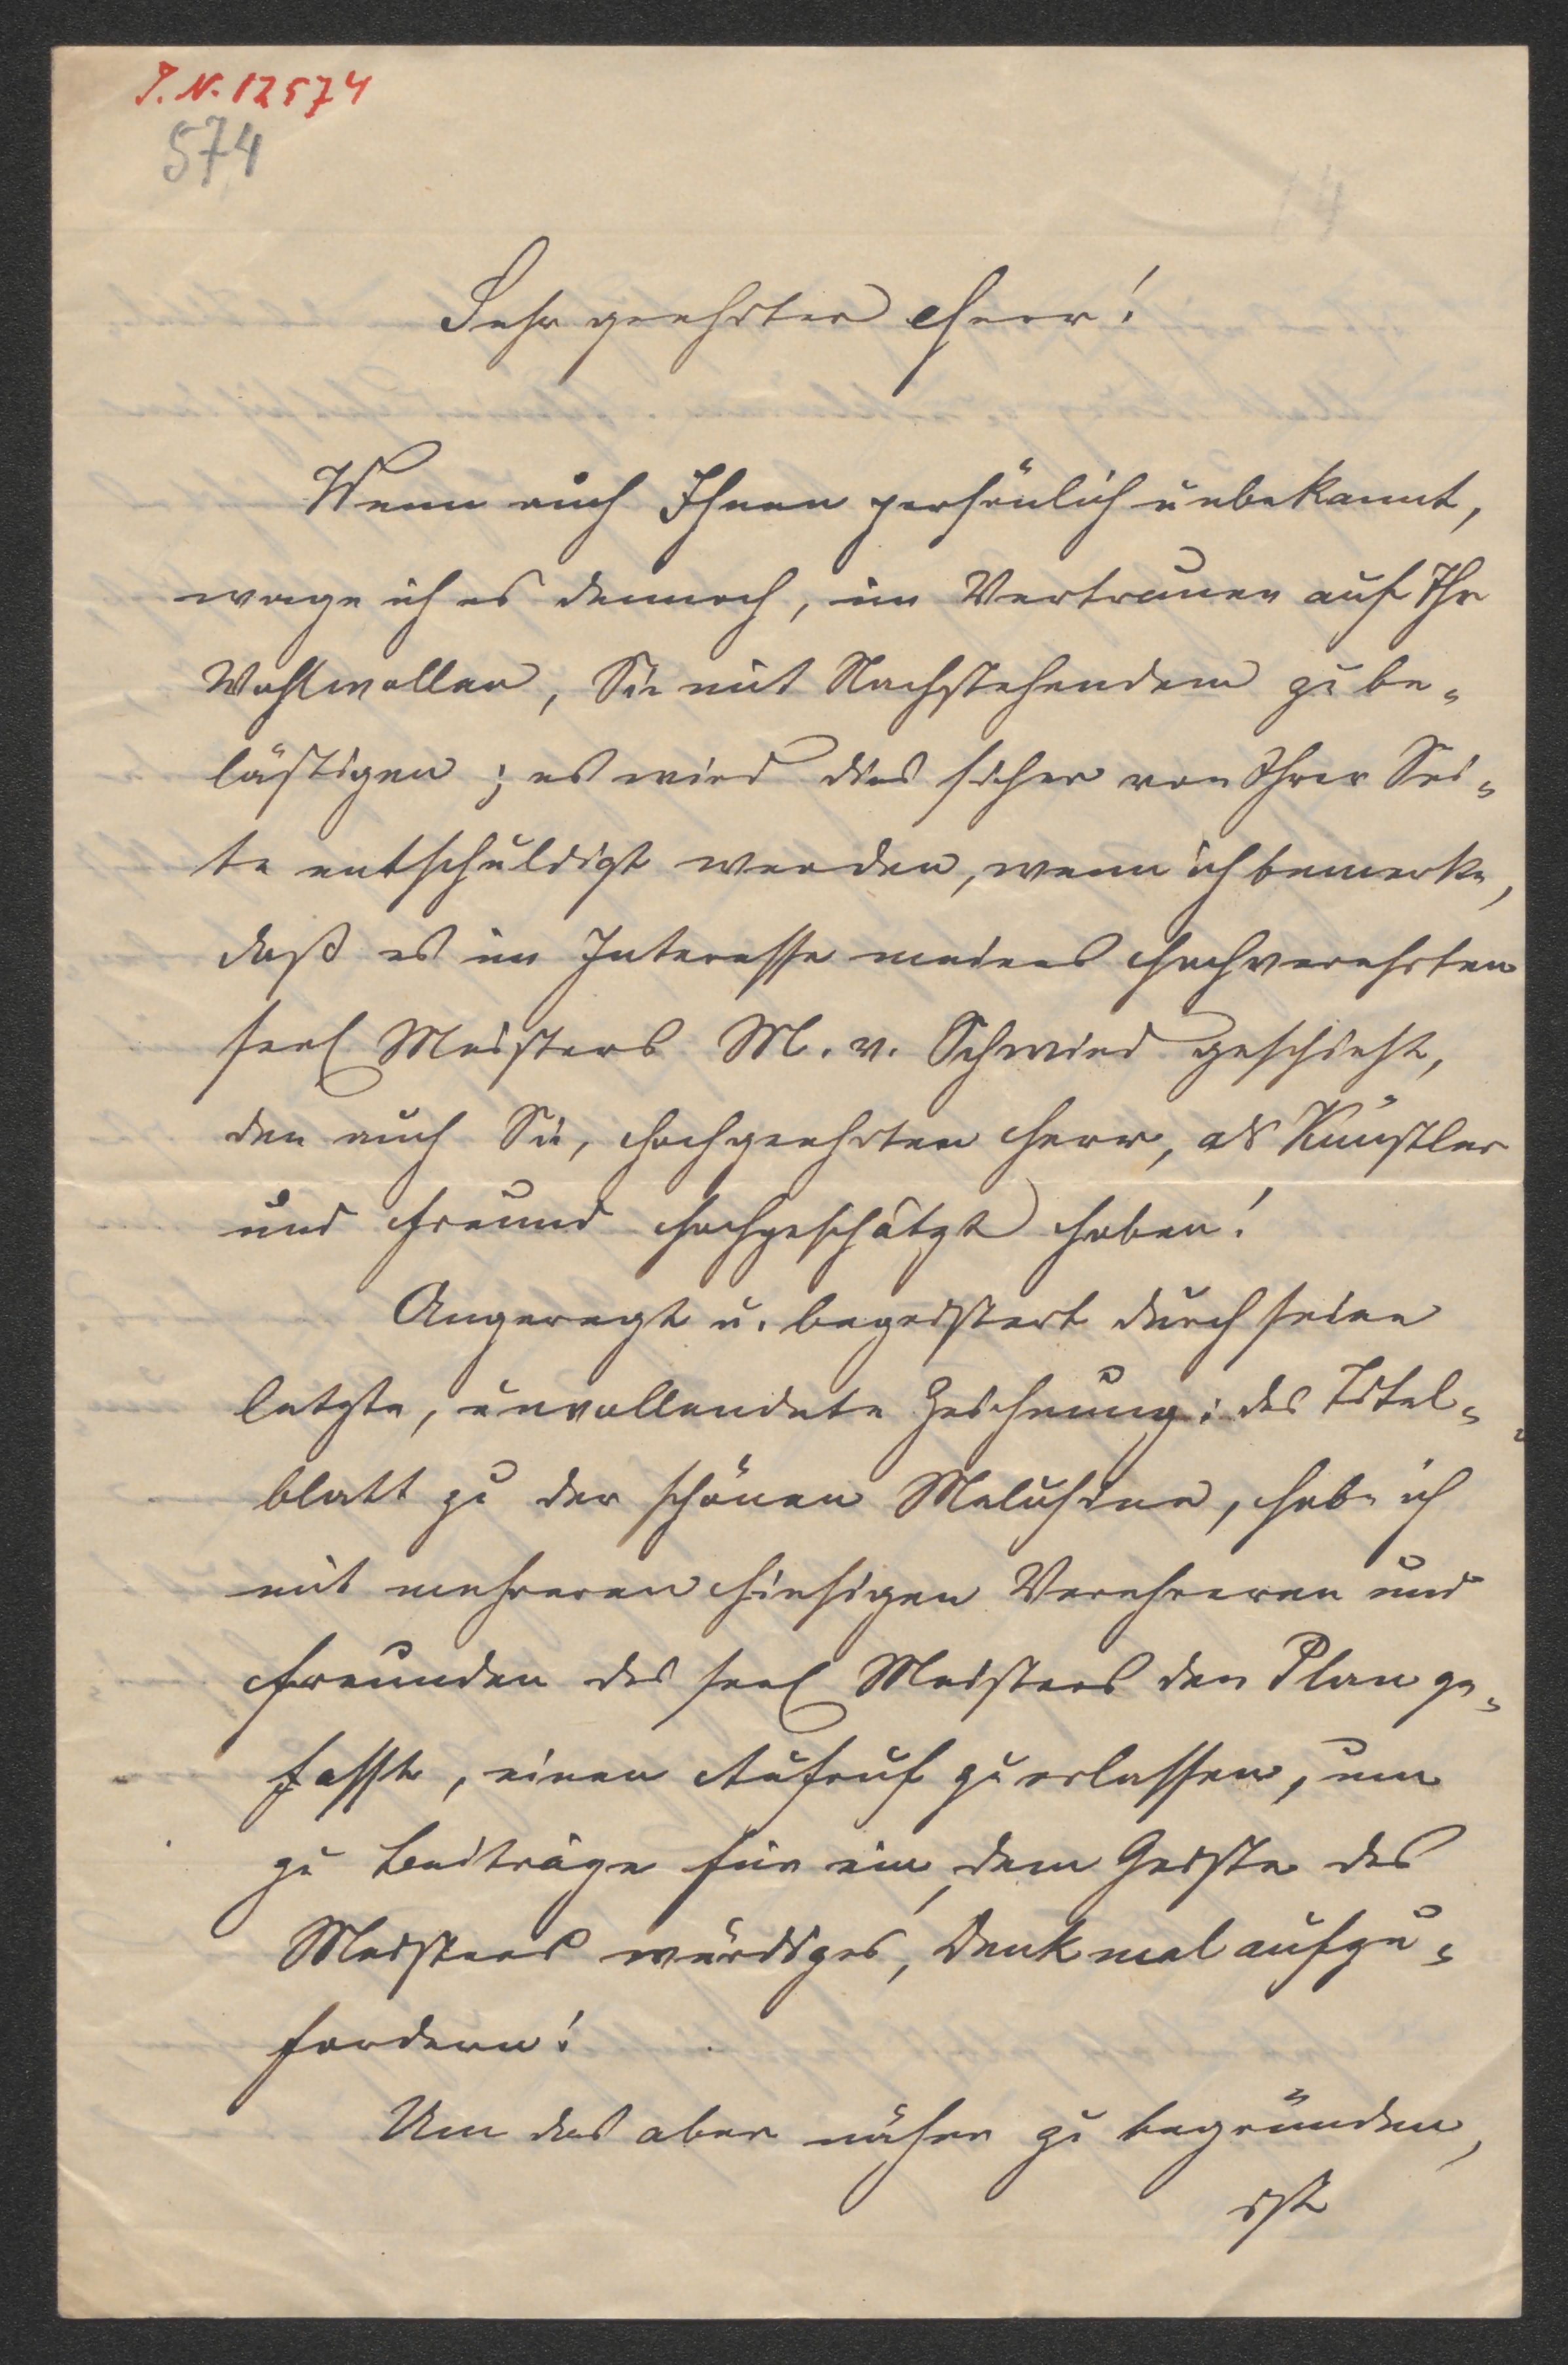 I. N. 12574
574
Sehr geehrter Herr!
Wenn auch Ihnen persönlich unbekannt,
wage ich es dennoch, im Vertrauen auf Ihr
Wohlwollen, Sie mit Nachstehendem zu be-
lästigen; es wird dies sicher von Ihrer Sei-
te entschuldigt werden, wenn ich bemerke,
daß es im Interesse meines hochverehrten
seel Meisters M. v. Schwind geschieht,
den auch Sie, hochgeehrter Herr, als Künstler
und Freund hochgeschätzt haben!
Angeregt u. begeistert durch seine
letzte, unvollendete Zeichnung: das Titel-
blatt zu der schönen Melusine, habe ich
mit mehreren hiesigen Verehreren und
Freunden des seel Meisters den Plan ge-
fasst, einen Aufruf zu erlassen, um
zu Beiträge für ein, dem Geiste des
Meisters würdiges, Denkmal aufzu-
fordern!
Um das aber näher zu begründen,
ist